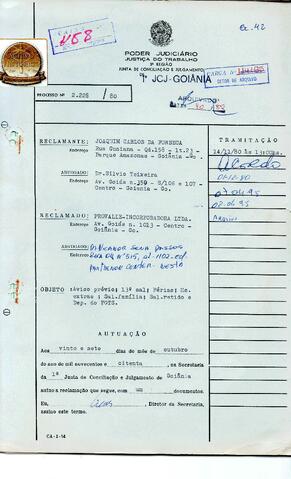 Cx. 42
CAIXA Nº
158
PODER JUDICIÁRIO
JUSTIÇA DO TRABALHO
3ª REGIÃO
JUNTA DE CONCILIAÇÃO E JULGAMENTO
1ª JCJ-GOIÂNIA
SETOR DE ARQUIVO
ARQUIVADO
PROCESSO Nº 2.228 / 80
RECLAMANTE: JOAQUIM CARLOS DA FONSECA
Endereço Rua Caniana - Qd.158 - Lt.21 -
Parque Amazonas - Goiânia - Go.
ADVOGADO Dr. Silvio Teixeira
Endereço Av. Goiás n.359 - S/106 e 107 -
Centro - Goiania - Go.
RECLAMADO: PROVALLE-INCORPORADORA LTDA.
Endereço Av. Goiás n. 1023 - Centro -
Goiânia - Go.
ADVOGADO
Endereço
OBJETO : Aviso prévio; 13º sal; Férias; Hs.
extras ; Sal.família; Sal.retido e
Dep. do FGTS.
TRAMITAÇÃO
14/11/80 às 13:00hs.
Acordo
01-12-80
07.04.95
02.06.95
AUTUAÇÃO
Aos vinte e sete dias do mês de outubro
do ano de mil novecentos e oitenta, na Secretaria
da 1ª Junta de Conciliação e Julgamento de Goiânia
autuo a reclamação que segue, com um documentos.
Eu, Diretor da Secretaria,
assino este termo.
CA-1-14